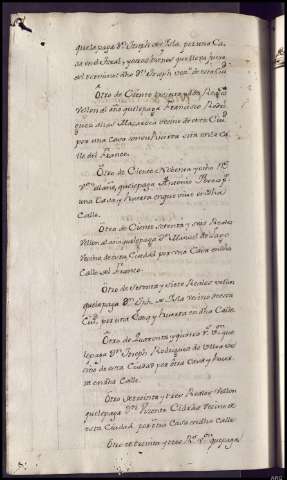 que le paga Dn Joseph de Isla, por una Ca
sa en el
termino año Dn Joseph vezº de esta Ciu
Otro de Ciento treinta y dos Reales
Vellon al año que le paga Francisco Rodri
guez Vecino de esta Ciud
por una Casa con su Huerta sita en la Ca
lle del Franco.
Otro de Ciento Noventa y ocho Rs
Vn Anual, que le paga Antonio
una Casa y Huerta en que vive en dha
Calle.
Otro de Ciento setenta y seis Reales
Vellon al año que le paga Dn Manuel de Lago
Vecino de esta Ciudad por una Casa en dha
Calle del Franco.
Otro de Setenta y siete Reales vellon
que le paga Dn Jph de Isla Vecino de esta
Ciud por una Casa y Huerta en dha Calle.
Otro de Quarenta y quatro Rs Vn que
le paga Dn Joseph Rodriguez de Ulloa ve
cino de esta Ciudad por otra Casa y Huer
ta en dha Calle.
Otro setenta y tres Reales Vellon
que le paga Dn Vicente Vecino de
esta Ciudad por otra Casa en dha Calle
Otro de treinta y tres Rs Vn que paga